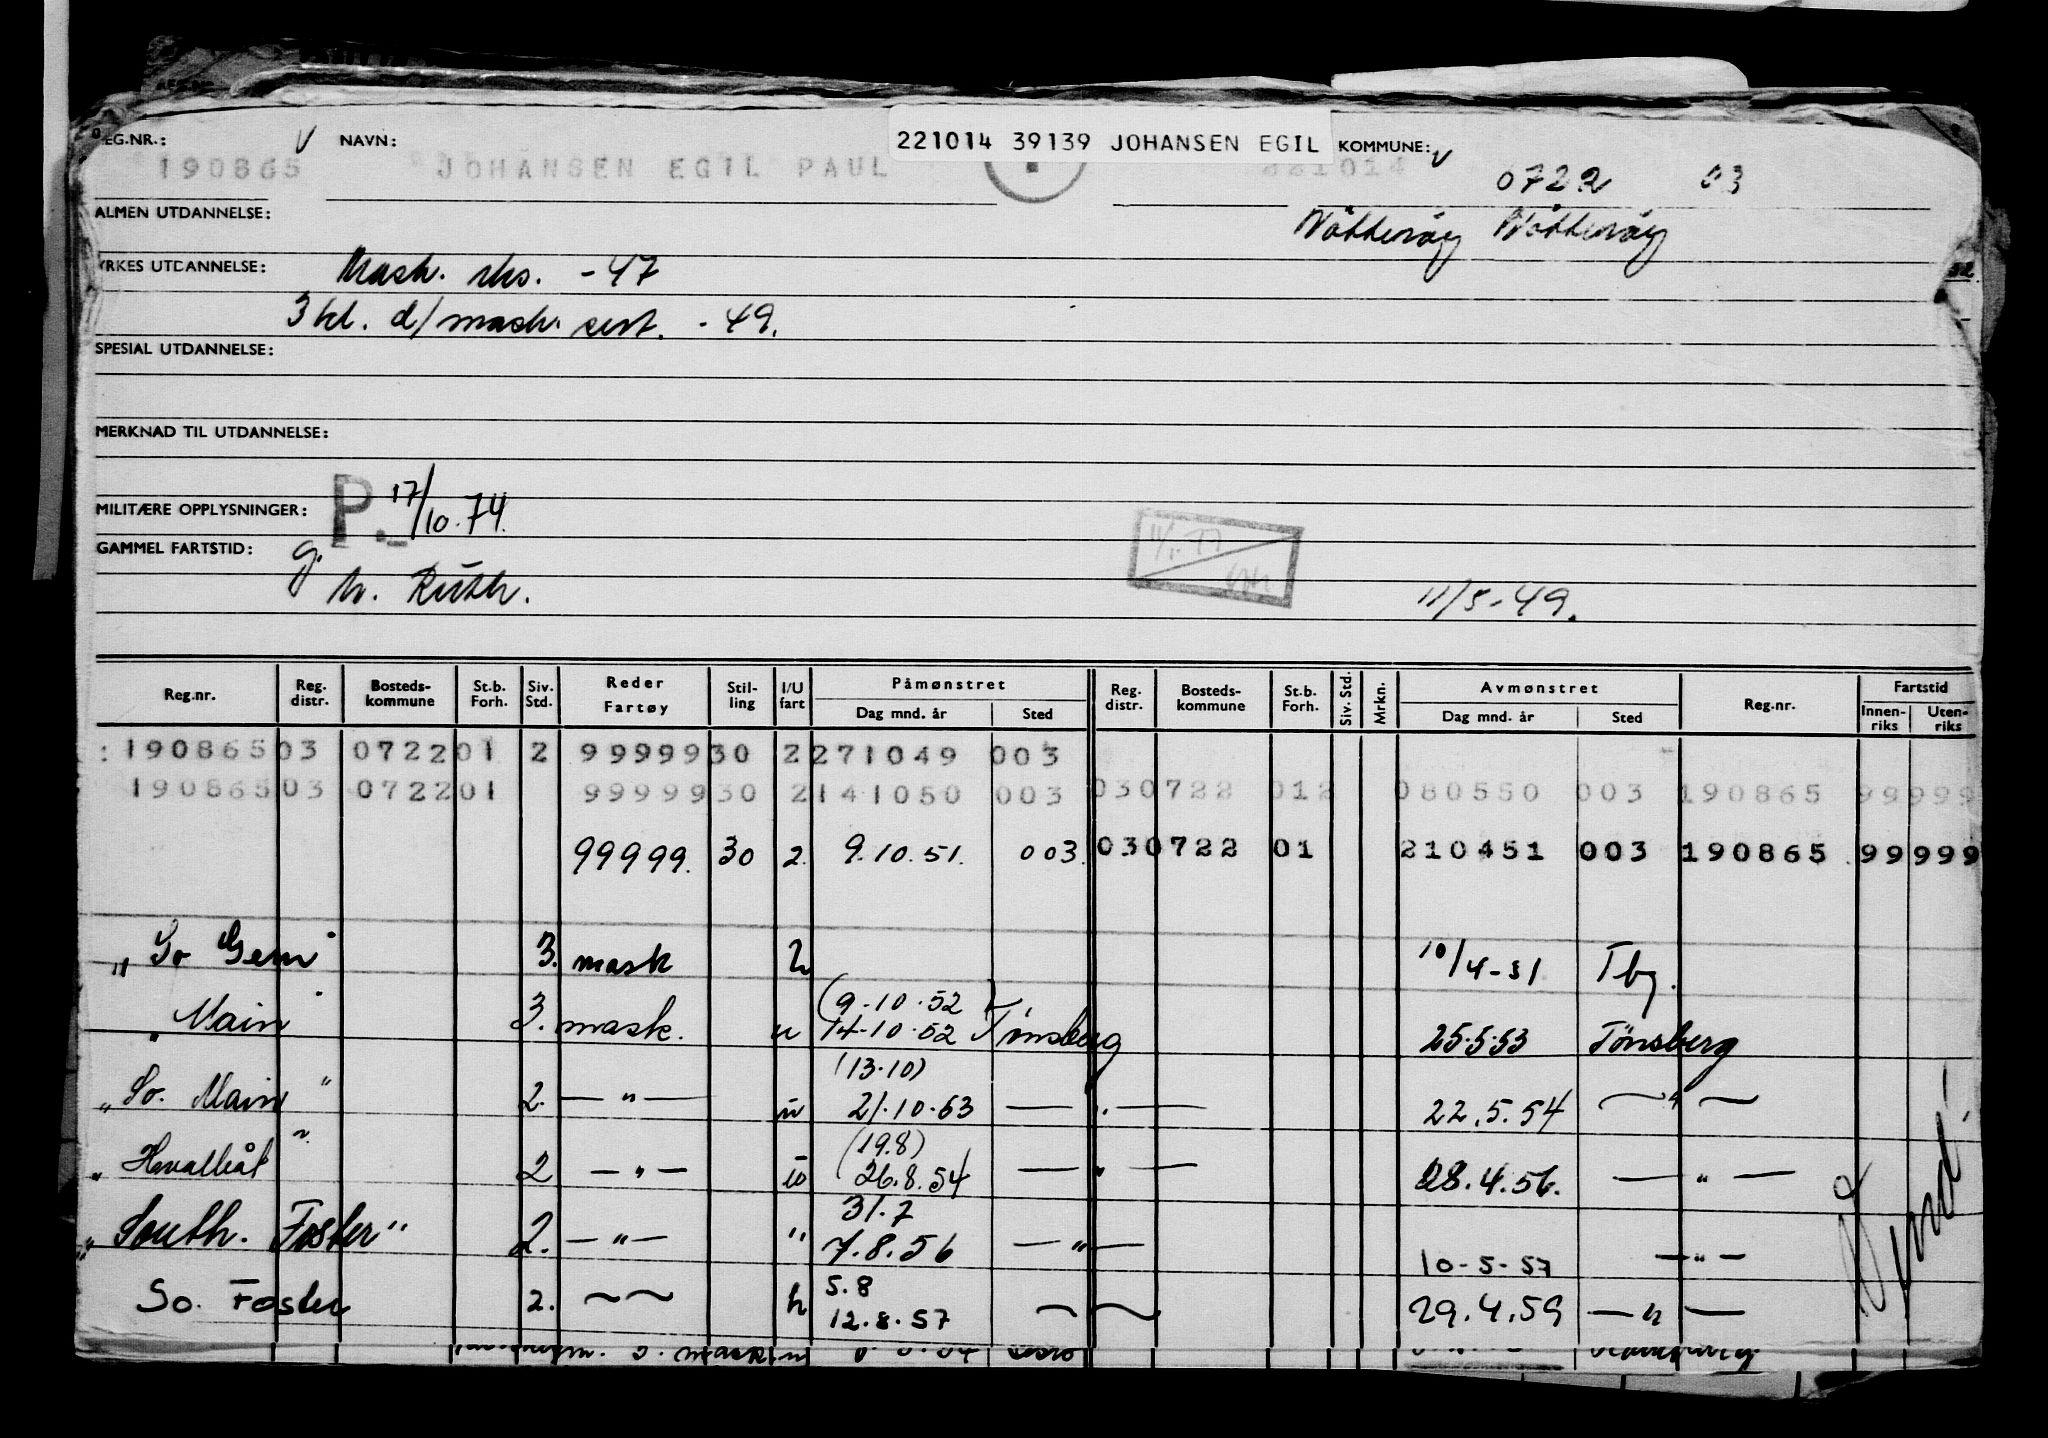 REG.NR.: V NAVN: 221014 39139 JOHANSEN EGIL KOMMUNE: V
190865 JOHANSEN EGIL PAUL 221014 0722 03
ALMEN UTDANNELSE: Nøtterøy Nøtterøy
YRKES UTDANNELSE: Mask. sks. -47
3 kl. d/mask. sert. -49.
SPESIAL UTDANNELSE:
MERKNAD TIL UTDANNELSE:
MILITÆRE OPPLYSNINGER: P. 17/10.74.
GAMMEL FARTSTID: g.
Ruth. 11/5-49.
Reg.nr. Reg. distr. Bosteds-kommune St.b. Forh. Siv. Std. Reder Fartøy Stil-ling I/U fart Påmønstret Dag mnd. år Sted Reg. distr. Bosteds-kommune St.b. Forh. Siv. Std. Mrkn. Avmønstret Dag mnd. år Sted Reg.nr. Fartstid Innen-riks Uten-riks
190865 03 0722 01 2 99999 30 2 271049 003
190865 03 0722 01 99999 30 2 141050 003 03 0722 012 080550 003 190865 99 999
99999. 30 2. 9.10.51. 003. 03 0722 01 210451 003 190865 99 999
„ So Gem " 3. mask 10/4-51 Tbg.
(9.10.52)
„ Main " 3. mask. u 14.10.52 Tønsberg 25.5.53 Tønsberg
(13.10)
„ So. Main " 2. — " — u 21.10.53 — " — 22.5.54 — " —
(19.8)
„ Hvalbåt " 2 — " — 26.8.54 — " — 28.4.56. — " —
31.7
„ South. Foster " 2. — " — " 7.8.56 — " — 10-5-57 — " —
5.8
So. Foster 2. 12.8.57 29.4.59 — " —